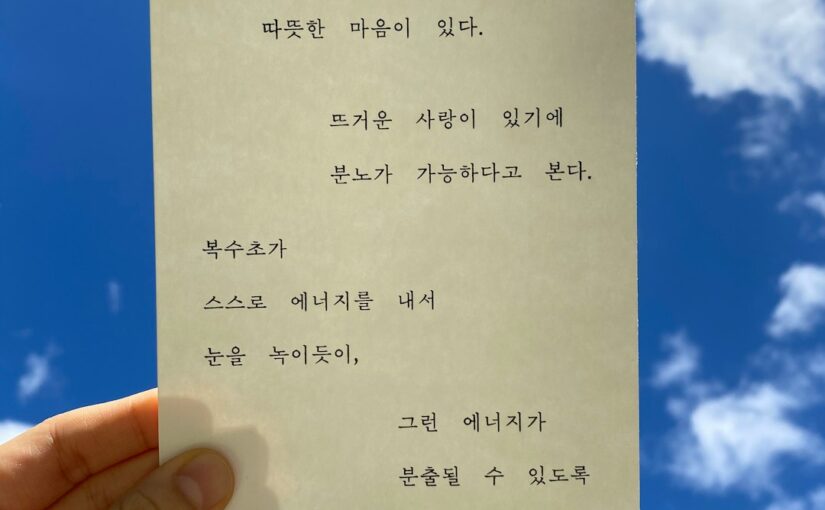 따뜻한 마음이 있다.
뜨거운 사랑이 있기에
분노가 가능하다고 본다.
복수초가
스스로 에너지를 내서
눈을 녹이듯이,
그런 에너지가
분출될 수 있도록